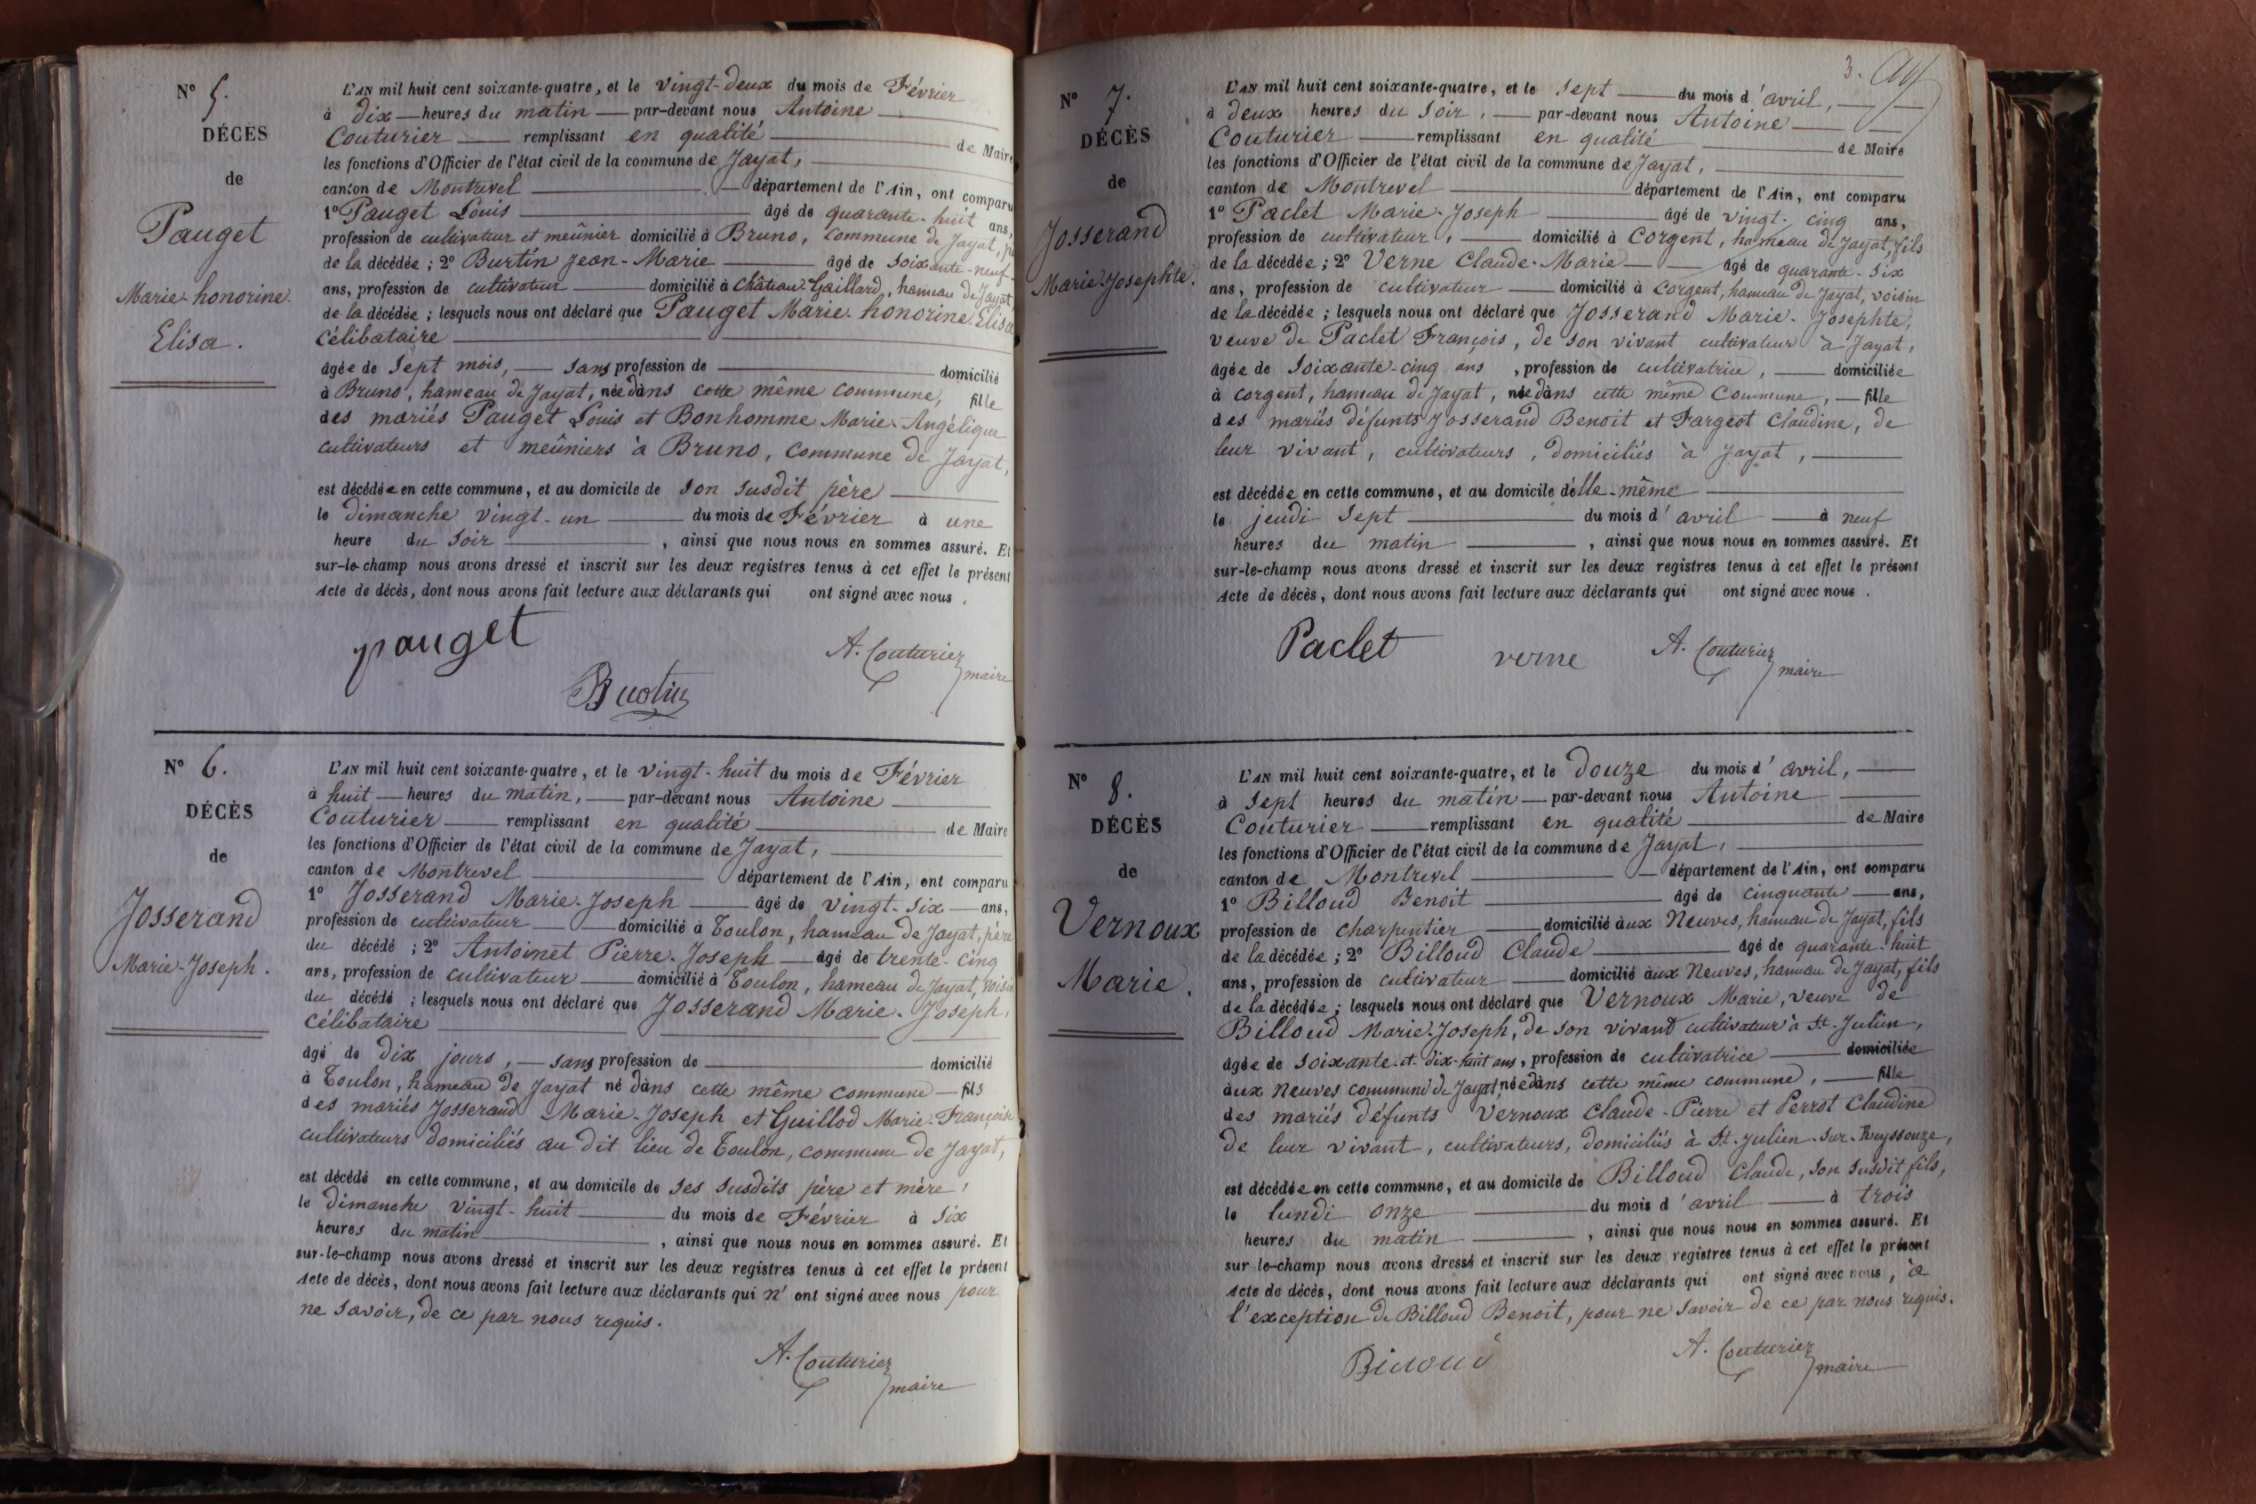 N° 5.
DÉCÈS
de
Pauget
Marie-honorine
Elisa.
L'AN mil huit cent soixante-quatre, et le vingt-deux du mois de Février
à dix heures du matin par-devant nous Antoine
Couturier remplissant en qualité de Maire
les fonctions d'Officier de l'état civil de la commune de Jayat,
canton de Montrevel département de l'Ain, ont comparu
1° Pauget Louis âgé de quarante-huit ans,
profession de cultivateur et meûnier domicilié à Bruno, commune de Jayat,
de la décédée; 2° Burtin Jean-Marie âgé de soixante-neuf
ans, profession de cultivateur domicilié à Château-Gaillard, hameau de Jayat,
de la décédée; lesquels nous ont déclaré que Pauget Marie-honorine Elisa
Célibataire
âgée de sept mois, sans profession de domicilié
à Bruno, hameau de Jayat, née dans cette même commune, fille
des mariés Pauget Louis et Bonhomme Marie-Angélique
cultivateurs et meûniers à Bruno, commune de Jayat,
est décédée en cette commune, et au domicile de son susdit père
le dimanche vingt-un du mois de Février à une
heure du soir, ainsi que nous nous en sommes assuré. Et
sur-le-champ nous avons dressé et inscrit sur les deux registres tenus à cet effet le présent
Acte de décès, dont nous avons fait lecture aux déclarants qui ont signé avec nous.
pauget
Burtin
A. Couturier
maire
N° 6.
DÉCÈS
de
Josserand
Marie-Joseph.
L'AN mil huit cent soixante-quatre, et le vingt-huit du mois de Février
à huit heures du matin, par-devant nous Antoine
Couturier remplissant en qualité de Maire
les fonctions d'Officier de l'état civil de la commune de Jayat,
canton de Montrevel département de l'Ain, ont comparu
1° Josserand Marie-Joseph âgé de vingt-six ans,
profession de cultivateur domicilié à Toulon, hameau de Jayat, père
du décédé; 2° Antoinet Pierre-Joseph âgé de trente-cinq
ans, profession de cultivateur domicilié à Toulon, hameau de Jayat, voisin
du décédé; lesquels nous ont déclaré que Josserand Marie-Joseph,
célibataire
âgé de dix jours, sans profession de domicilié
à Toulon, hameau de Jayat né dans cette même commune fils
des mariés Josserand Marie-Joseph et Guillod Marie-Françoise
cultivateurs domiciliés au dit lieu de Toulon, commune de Jayat,
est décédé en cette commune, et au domicile de ses susdits père et mère,
le dimanche vingt-huit du mois de Février à six
heures du matin, ainsi que nous nous en sommes assuré. Et
sur-le-champ nous avons dressé et inscrit sur les deux registres tenus à cet effet le présent
Acte de décès, dont nous avons fait lecture aux déclarants qui n'ont signé avec nous pour
ne savoir, de ce par nous requis.
A. Couturier
maire
3.
N° 7.
DÉCÈS
de
Josserand
Marie-Josephte.
L'AN mil huit cent soixante-quatre, et le sept du mois d'avril,
à deux heures du soir, par-devant nous Antoine
Couturier remplissant en qualité de Maire
les fonctions d'Officier de l'état civil de la commune de Jayat,
canton de Montrevel département de l'Ain, ont comparu
1° Paclet Marie-Joseph âgé de vingt-cinq ans,
profession de cultivateur, domicilié à Corgent, hameau de Jayat, fils
de la décédée; 2° Verne Claude-Marie âgé de quarante-six
ans, profession de cultivateur domicilié à Corgent, hameau de Jayat, voisin
de la décédée; lesquels nous ont déclaré que Josserand Marie-Josephte,
veuve de Paclet François, de son vivant cultivateur à Jayat,
âgée de soixante-cinq ans, profession de cultivatrice, domiciliée
à Corgent, hameau de Jayat, née dans cette même commune, fille
des mariés défunts Josserand Benoit et Fargeot Claudine, de
leur vivant, cultivateurs, domiciliés à Jayat,
est décédée en cette commune, et au domicile d'elle-même
le jeudi sept du mois d'avril à neuf
heures du matin, ainsi que nous nous en sommes assuré. Et
sur-le-champ nous avons dressé et inscrit sur les deux registres tenus à cet effet le présent
Acte de décès, dont nous avons fait lecture aux déclarants qui ont signé avec nous.
Paclet
verne
A. Couturier
maire
N° 8.
DÉCÈS
de
Vernoux
Marie.
L'AN mil huit cent soixante-quatre, et le douze du mois d'avril,
à sept heures du matin par-devant nous Antoine
Couturier remplissant en qualité de Maire
les fonctions d'Officier de l'état civil de la commune de Jayat,
canton de Montrevel département de l'Ain, ont comparu
1° Billoud Benoit âgé de cinquante ans,
profession de charpentier domicilié aux Neuves, hameau de Jayat, fils
de la décédée; 2° Billoud Claude âgé de quarante-huit
ans, profession de cultivateur domicilié aux Neuves, hameau de Jayat, fils
de la décédée; lesquels nous ont déclaré que Vernoux Marie, veuve de
Billoud Marie-Joseph, de son vivant cultivateur à St. Julien,
âgée de soixante-et-dix-huit ans, profession de cultivatrice domiciliée
aux Neuves commune de Jayat, née dans cette même commune, fille
des mariés défunts Vernoux Claude-Pierre et Perrot Claudine
de leur vivant, cultivateurs, domiciliés à St. Julien-sur-Reyssouze,
est décédée en cette commune, et au domicile de Billoud Claude, son susdit fils,
le lundi onze du mois d'avril à trois
heures du matin, ainsi que nous nous en sommes assuré. Et
sur le-champ nous avons dressé et inscrit sur les deux registres tenus à cet effet le présent
Acte de décès, dont nous avons fait lecture aux déclarants qui ont signé avec nous, à
l'exception de Billoud Benoit, pour ne savoir de ce par nous requis.
Billoud
A. Couturier
maire